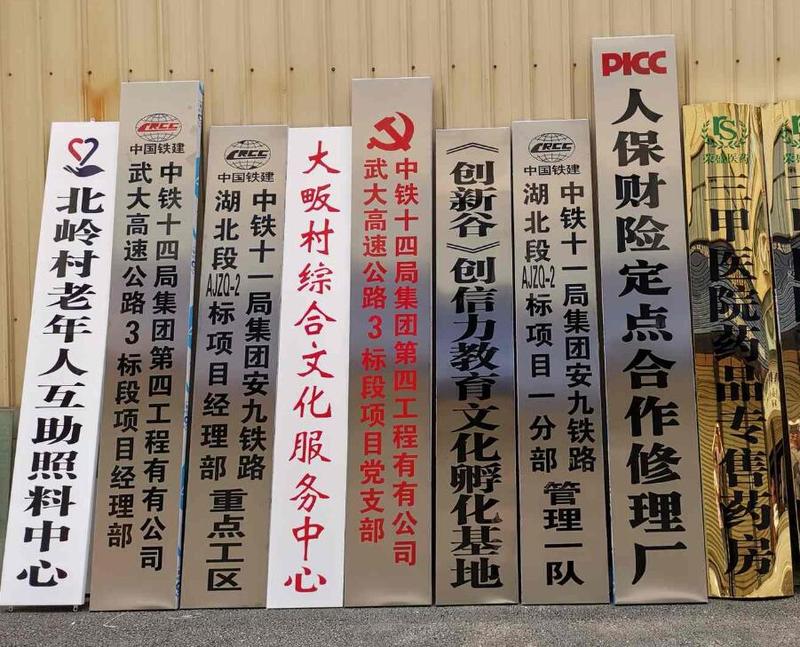 北岭村老年人互助照料中心
CRCC
中国铁建
中铁十四局集团第四工程有有公司
武大高速公路3 标段项目经理部
CRCC
中国铁建
中铁十一局集团安九铁路
湖北段AJZQ-2标项目经理部
重点工区
大畈村综合文化服务中心
中铁十四局集团第四工程有有公司
武大高速公路3 标段项目党支部
《创新谷》创信力教育文化孵化基地
CRCC
中国铁建
中铁十一局集团安九铁路
湖北段AJZQ-2标项目一分部
管理一队
PICC
人保财险定点合作修理厂
rs
荣盛医药
三甲医院药品专售药房